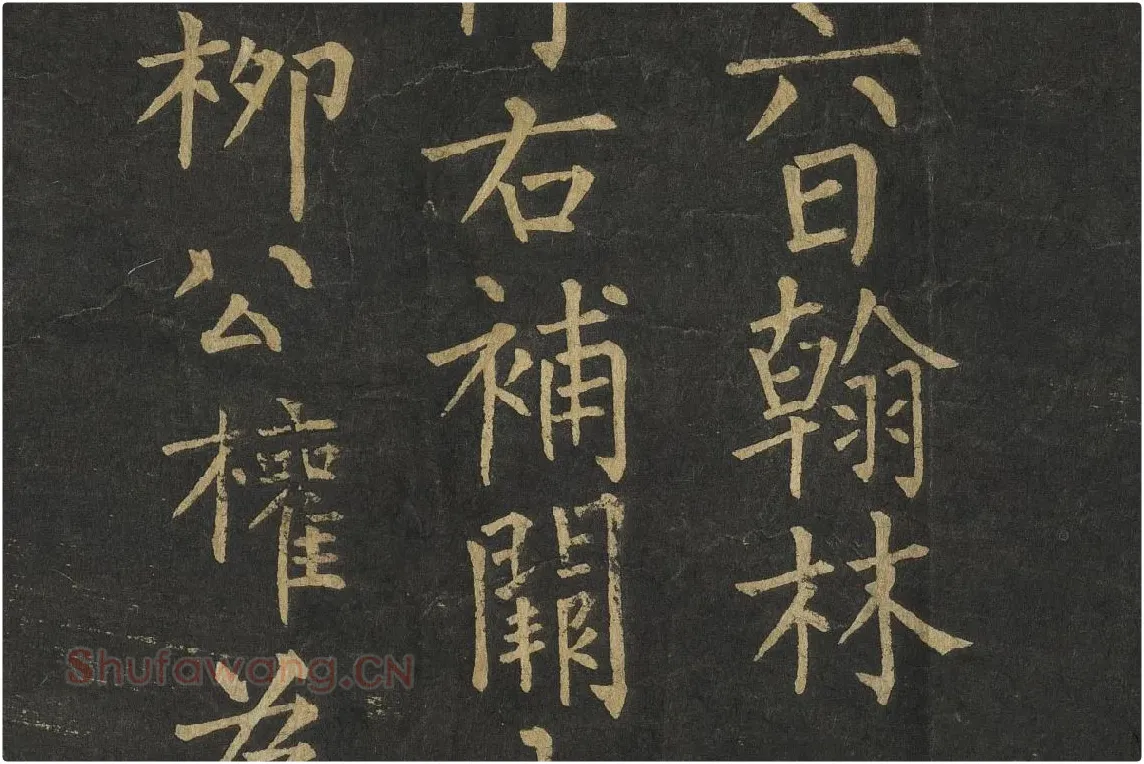 六日翰林
右補闕
柳公權為
Shufawang.CN